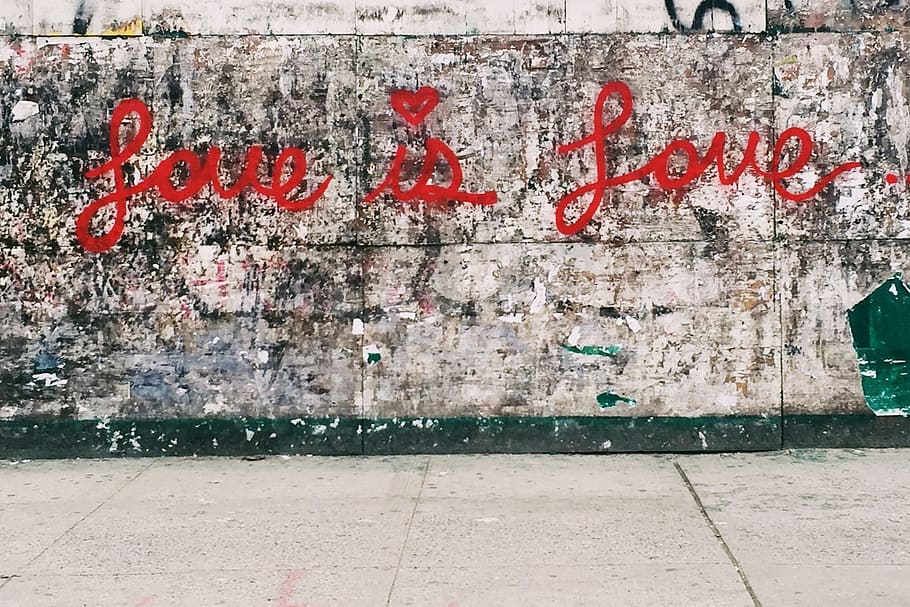 Love is Love.